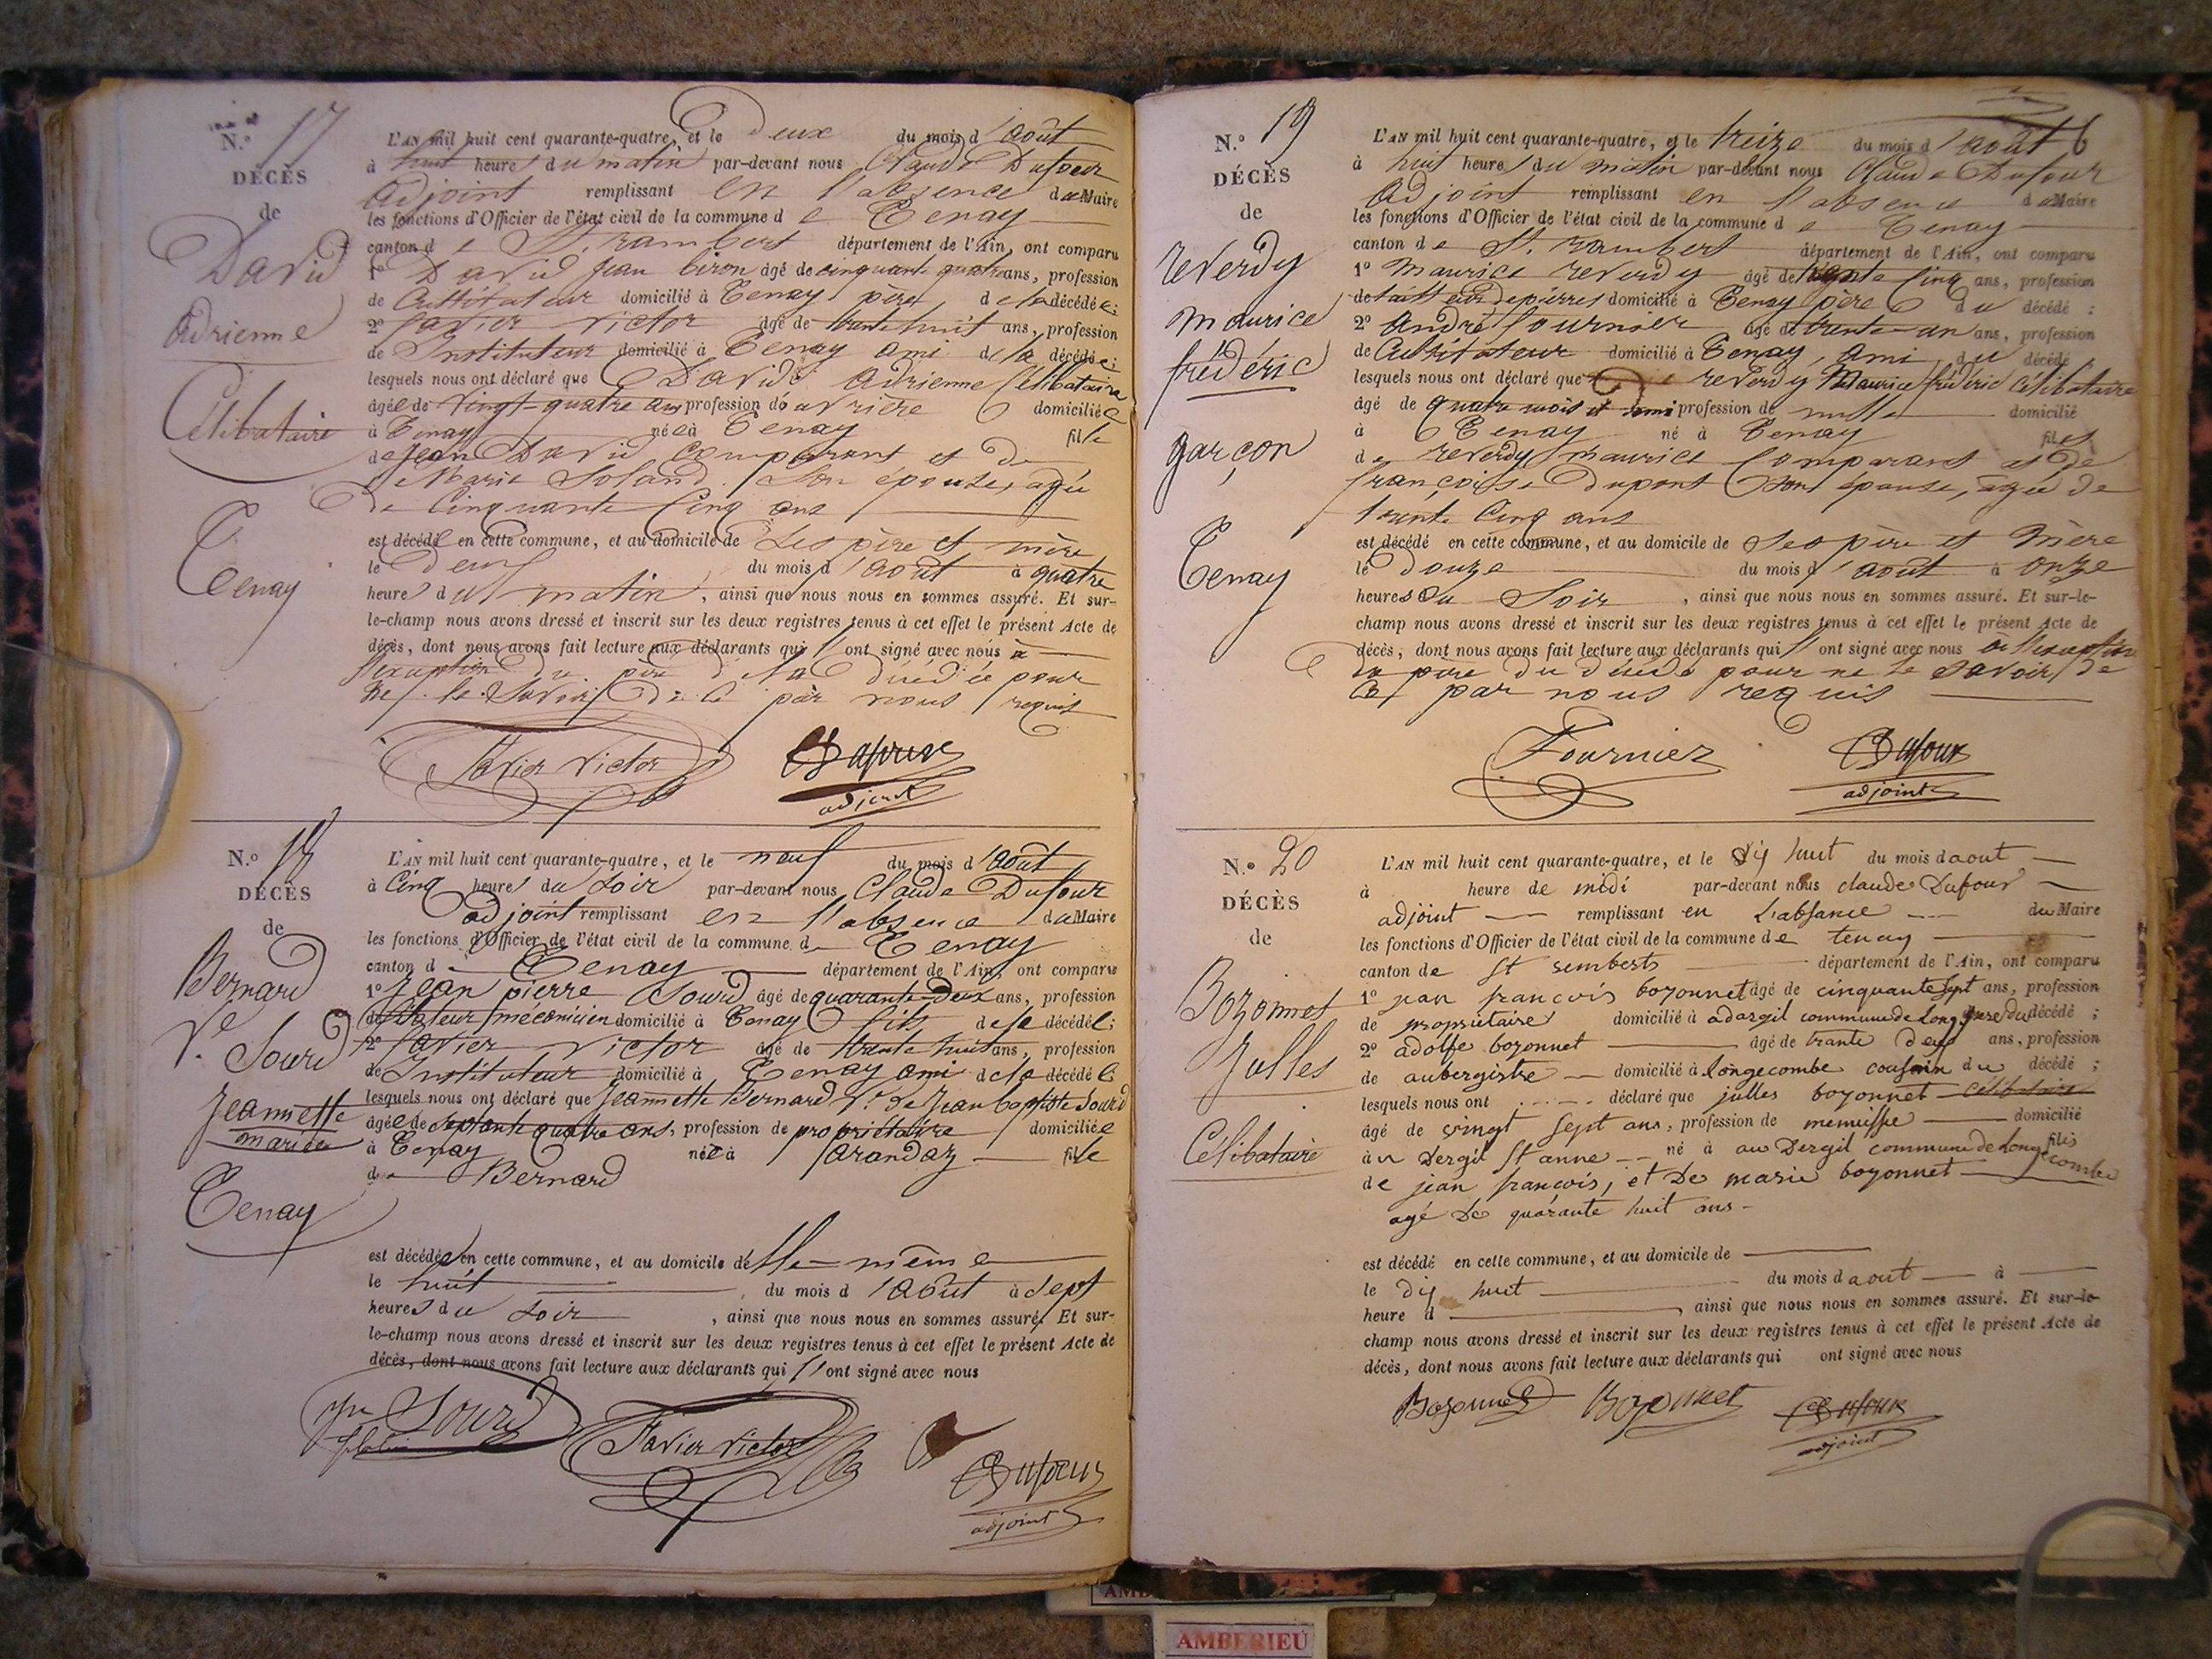 N.° 17
DÉCÈS
de
David
Adrienne
Célibataire
Tenay
L'AN mil huit cent quarante-quatre, et le Deux du mois d'août
à huit heures du matin par-devant nous Claude Dufour
adjoint remplissant en l'absence du Maire
les fonctions d'Officier de l'état civil de la commune de Tenay
canton de St. rambert département de l'Ain, ont comparu
1° David Jean âgé de cinquante quatre ans, profession
de Cultivateur domicilié à Tenay père de la décédée;
2° Favier Victor âgé de trente huit ans, profession
de Instituteur domicilié à Tenay ami de la décédée;
lesquels nous ont déclaré que David Adrienne Célibataire
âgée de vingt-quatre ans profession d'ouvrière domiciliée
à Tenay née à Tenay fille
de Jean David Comparant et de
Marie Soland Son épouse, agée
De Cinquante Cinq ans
est décédée en cette commune, et au domicile de Ses père et mère
le Deux du mois d'août à quatre
heures du matin, ainsi que nous nous en sommes assuré. Et sur-
le-champ nous avons dressé et inscrit sur les deux registres tenus à cet effet le présent Acte de
décès, dont nous avons fait lecture aux déclarants qui l'ont signé avec nous à
l'exception du père de la décédée pour
ne le Savoir De Ce par nous requis
Favier Victor Dufour
adjoint
N.° 18
DÉCÈS
de
Bernard
Ve Sourd
Jeannette
mariée
Tenay
L'AN mil huit cent quarante-quatre, et le neuf du mois d'août
à Cinq heures du Soir par-devant nous Claude Dufour
adjoint remplissant en l'absence du Maire
les fonctions d'Officier de l'état civil de la commune de Tenay
canton de Tenay département de l'Ain, ont comparu
1° Jean pierre Sourd âgé de quarante-Deux ans, profession
de fileur mecanicien domicilié à Tenay fils de la décédée;
2° Favier Victor âgé de trente huit ans, profession
de Instituteur domicilié à Tenay ami de la décédée
lesquels nous ont déclaré que Jeannette Bernard Ve de Jean Baptiste Sourd
âgée de Septante quatre ans, profession de propriétaire domiciliée
à Tenay née à arandaz fille
de Bernard
est décédée en cette commune, et au domicile d'elle-même
le huit du mois d'août à Sept
heures du Soir, ainsi que nous nous en sommes assuré. Et sur-
le-champ nous avons dressé et inscrit sur les deux registres tenus à cet effet le présent Acte de
décès, dont nous avons fait lecture aux déclarants qui l'ont signé avec nous
Sourd Favier Victor Dufour
adjoint
N.° 19
DÉCÈS
de
reverdy
maurice
frédéric
garçon
Tenay
6
L'AN mil huit cent quarante-quatre, et le treize du mois d'août
à huit heures du matin par-devant nous Claude Dufour
adjoint remplissant en l'absence du Maire
les fonctions d'Officier de l'état civil de la commune de Tenay
canton de St. rambert département de l'Ain, ont comparu
1° maurice reverdy âgé de trente Cinq ans, profession
de tailleur de pierres domicilié à Tenay père du décédé :
2° André fournier âgé de trente-un ans, profession
de Cultivateur domicilié à Tenay, ami du décédé
lesquels nous ont déclaré que reverdy Maurice frédéric Célibataire
âgé de quatre mois et demi profession de nulle domicilié
à Tenay né à Tenay fils
de reverdy maurice Comparant et de
françoise Dupont Son épouse, agée de
trente Cinq ans
est décédé en cette commune, et au domicile de Ses père et mère
le Douze du mois d'août à onze
heures du Soir, ainsi que nous nous en sommes assuré. Et sur-le-
champ nous avons dressé et inscrit sur les deux registres tenus à cet effet le présent Acte de
décès, dont nous avons fait lecture aux déclarants qui l'ont signé avec nous à l'exception
Du père du décédé pour ne le savoir, de
Ce par nous requis
Fournier Dufour
adjoint
N.° 20
DÉCÈS
de
Bozonnet
Julles
Célibataire
L'AN mil huit cent quarante-quatre, et le dix huit du mois d aout
à heure de midi par-devant nous claude Dufour
adjoint remplissant en L'absance du Maire
les fonctions d'Officier de l'état civil de la commune de tenay
canton de St rembert département de l'Ain, ont comparu
1° jean francois bozonnet âgé de cinquante sept ans, profession
de propriétaire domicilié à adargil commune de Long père du décédé ;
2° adolfe bozonnet âgé de trante deux ans, profession
de aubergiste domicilié à longecombe cousin du décédé ;
lesquels nous ont déclaré que julles bozonnet célibataire
âgé de vingt sept ans, profession de domicilié
à au Dergil St anne né à au Dergil commune de Longecombe fils
de jean francois, et De marie bozonnet
agé De quarante huit ans
est décédé en cette commune, et au domicile de
le dix huit du mois d aout à
heure d , ainsi que nous nous en sommes assuré. Et sur-le-
champ nous avons dressé et inscrit sur les deux registres tenus à cet effet le présent Acte de
décès, dont nous avons fait lecture aux déclarants qui ont signé avec nous
Bozonnet Bozonnet Dufour
adjoint
AMBERIEU